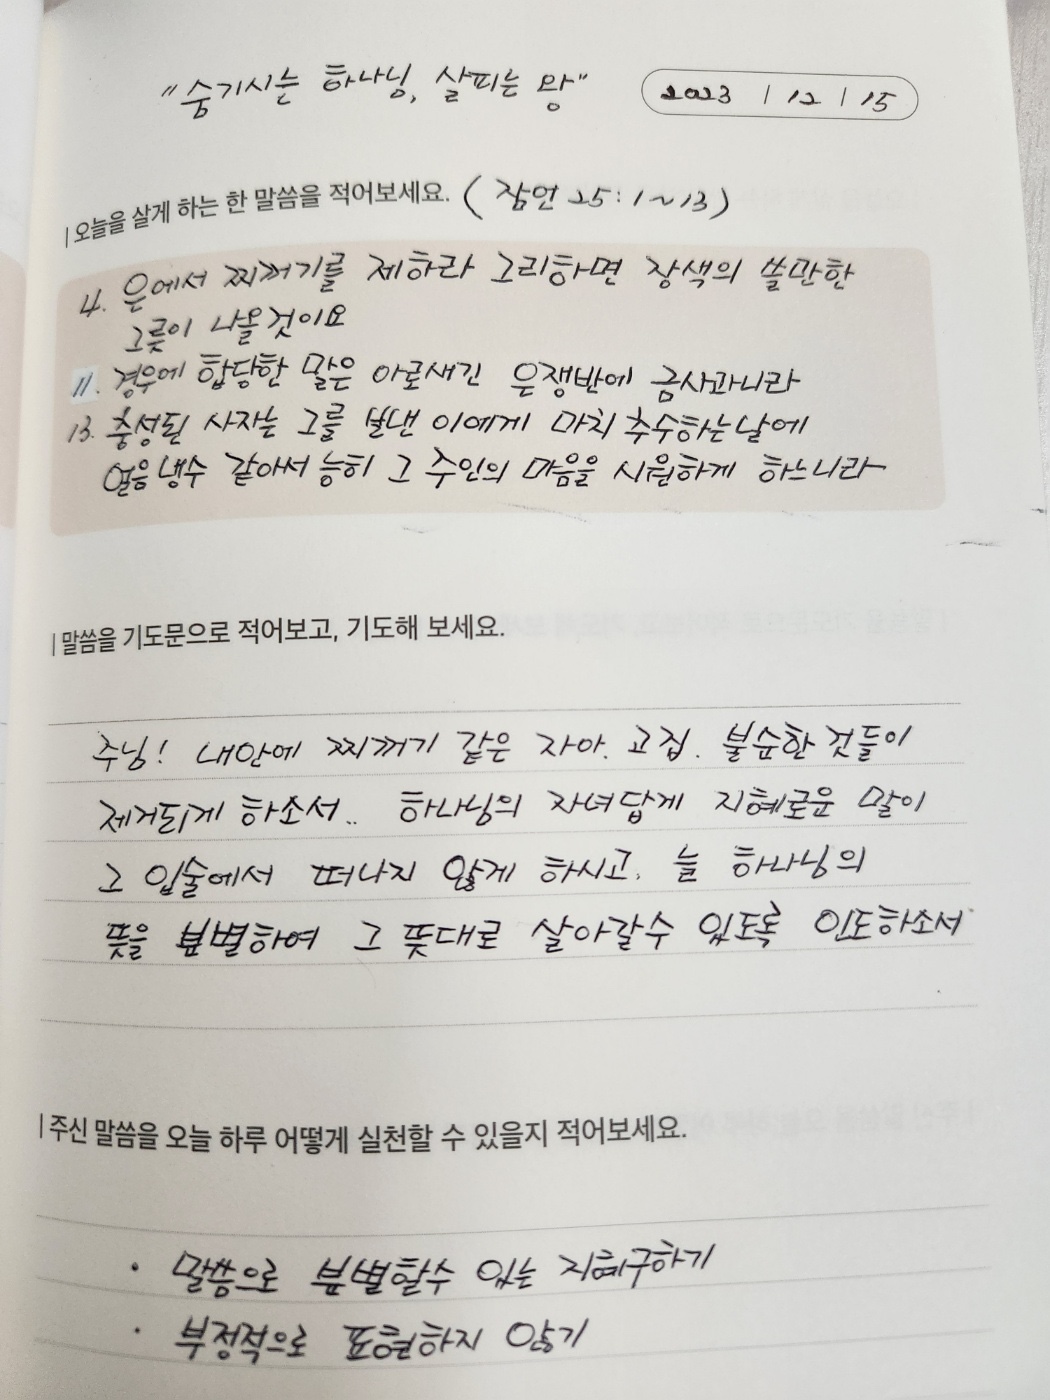 "숨기시는 하나님, 살피는 왕"
2023 / 12 / 15
| 오늘을 살게 하는 한 말씀을 적어보세요. (잠언 25:1~13)
4. 은에서 찌꺼기를 제하라 그리하면 장색의 쓸만한
그릇이 나올것이요
11. 경우에 합당한 말은 아로새긴 은쟁반에 금사과니라
13. 충성된 사자는 그를 보낸 이에게 마치 추수하는날에
얼음냉수 같아서 능히 그 주인의 마음을 시원하게 하느니라
| 말씀을 기도문으로 적어보고, 기도해 보세요.
주님! 내안에 찌꺼기 같은 자아. 고집. 불순한 것들이
제거되게 하소서.. 하나님의 자녀답게 지혜로운 말이
그 입술에서 떠나지 않게 하시고. 늘 하나님의
뜻을 분별하여 그 뜻대로 살아갈수 있도록 인도하소서
| 주신 말씀을 오늘 하루 어떻게 실천할 수 있을지 적어보세요.
· 말씀으로 분별할수 있는 지혜구하기
· 부정적으로 표현하지 않기